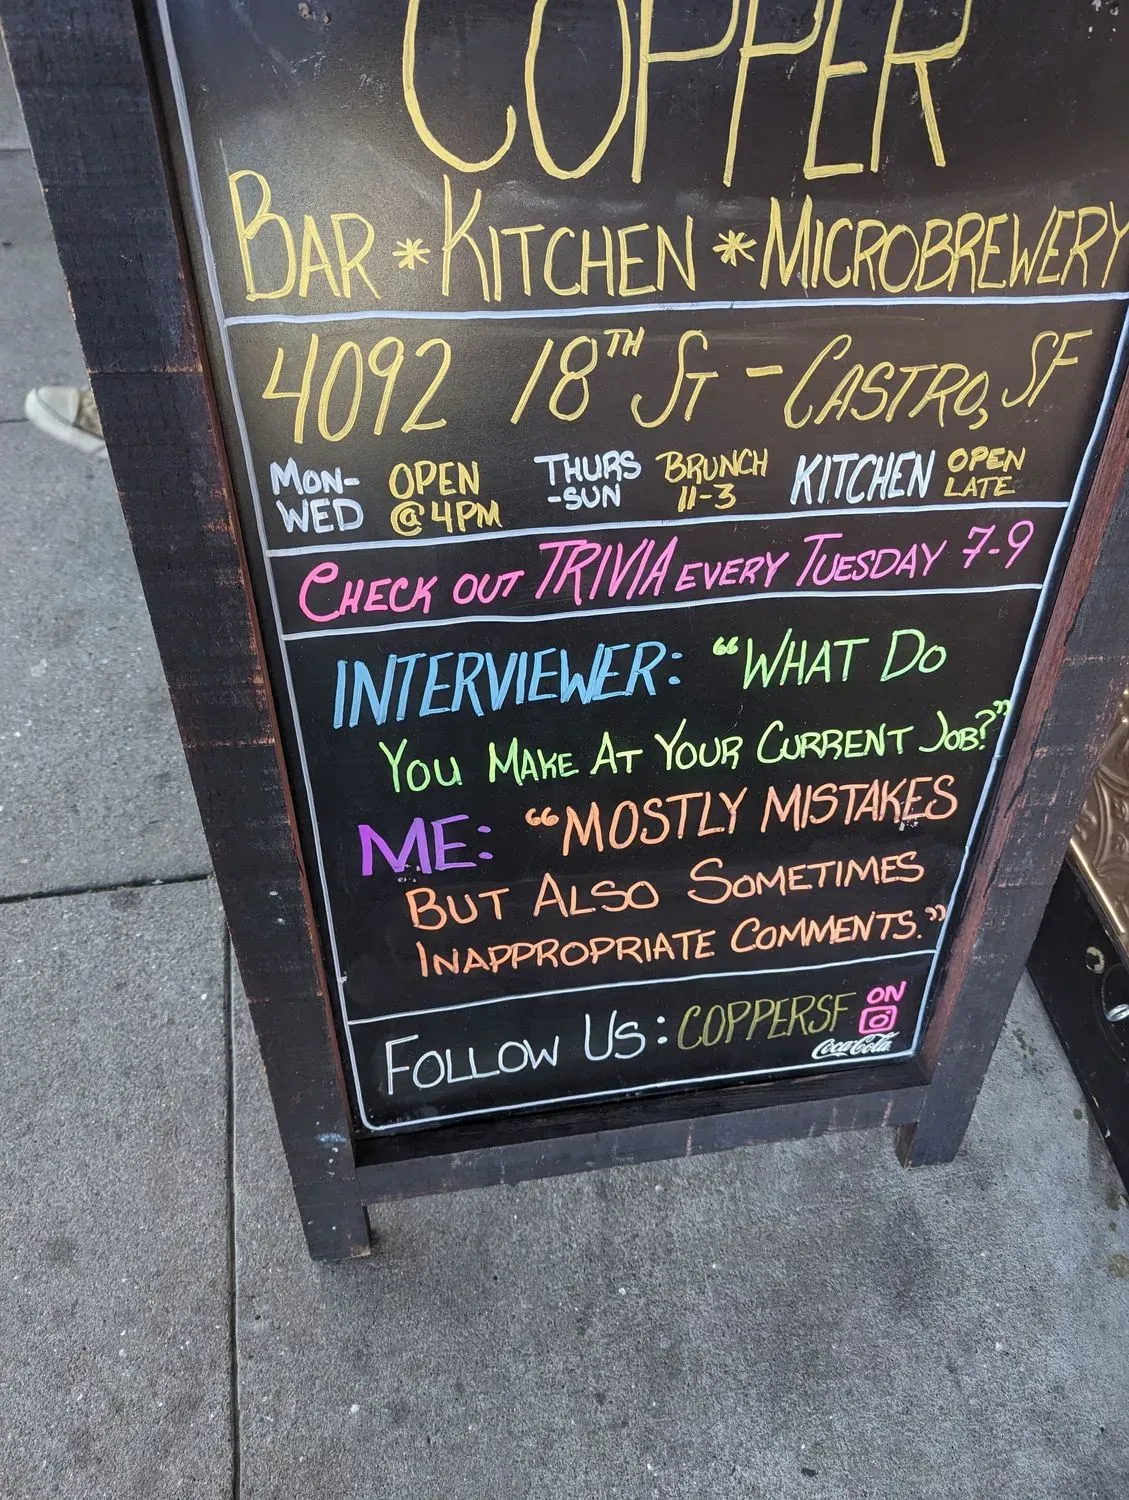 COPPER
BAR * KITCHEN * MICROBREWERY
4092 18TH ST - CASTRO, SF
MON-WED OPEN @ 4PM THURS-SUN BRUNCH 11-3 KITCHEN OPEN LATE
CHECK OUT TRIVIA EVERY TUESDAY 7-9
INTERVIEWER: "WHAT DO
YOU MAKE AT YOUR CURRENT JOB?"
ME: "MOSTLY MISTAKES
BUT ALSO SOMETIMES
INAPPROPRIATE COMMENTS."
FOLLOW US: COPPERSF ON
Coca-Cola